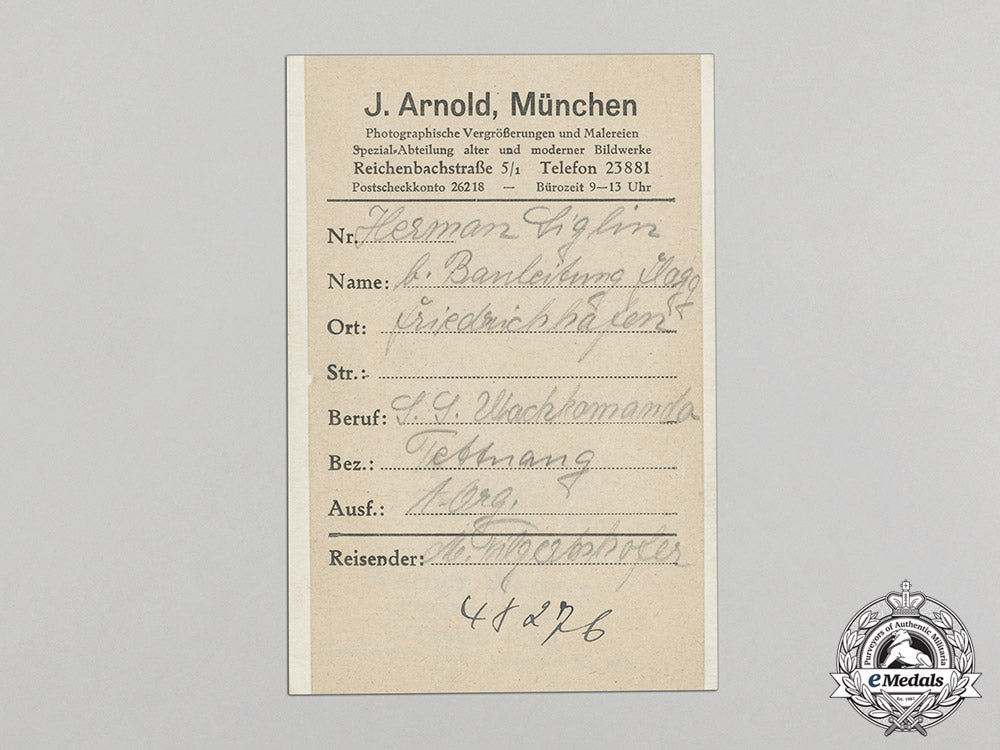 J. Arnold, München
Photographische Vergrößerungen und Malereien
Spezial-Abteilung alter und moderner Bildwerke
Reichenbachstraße 5/1 Telefon 23881
Postscheckkonto 26218 — Bürozeit 9—13 Uhr
Nr. Herman Siglin
Name: b. Bauleitung
Ort: Friedrichhafen
Str.:
Beruf: S. S. Wachkomando
Bez.: Tettnang
Ausf.: 1 Org.
Reisender: M.
48276
Purveyors of Authentic Militaria
eMedals
Est. 1985